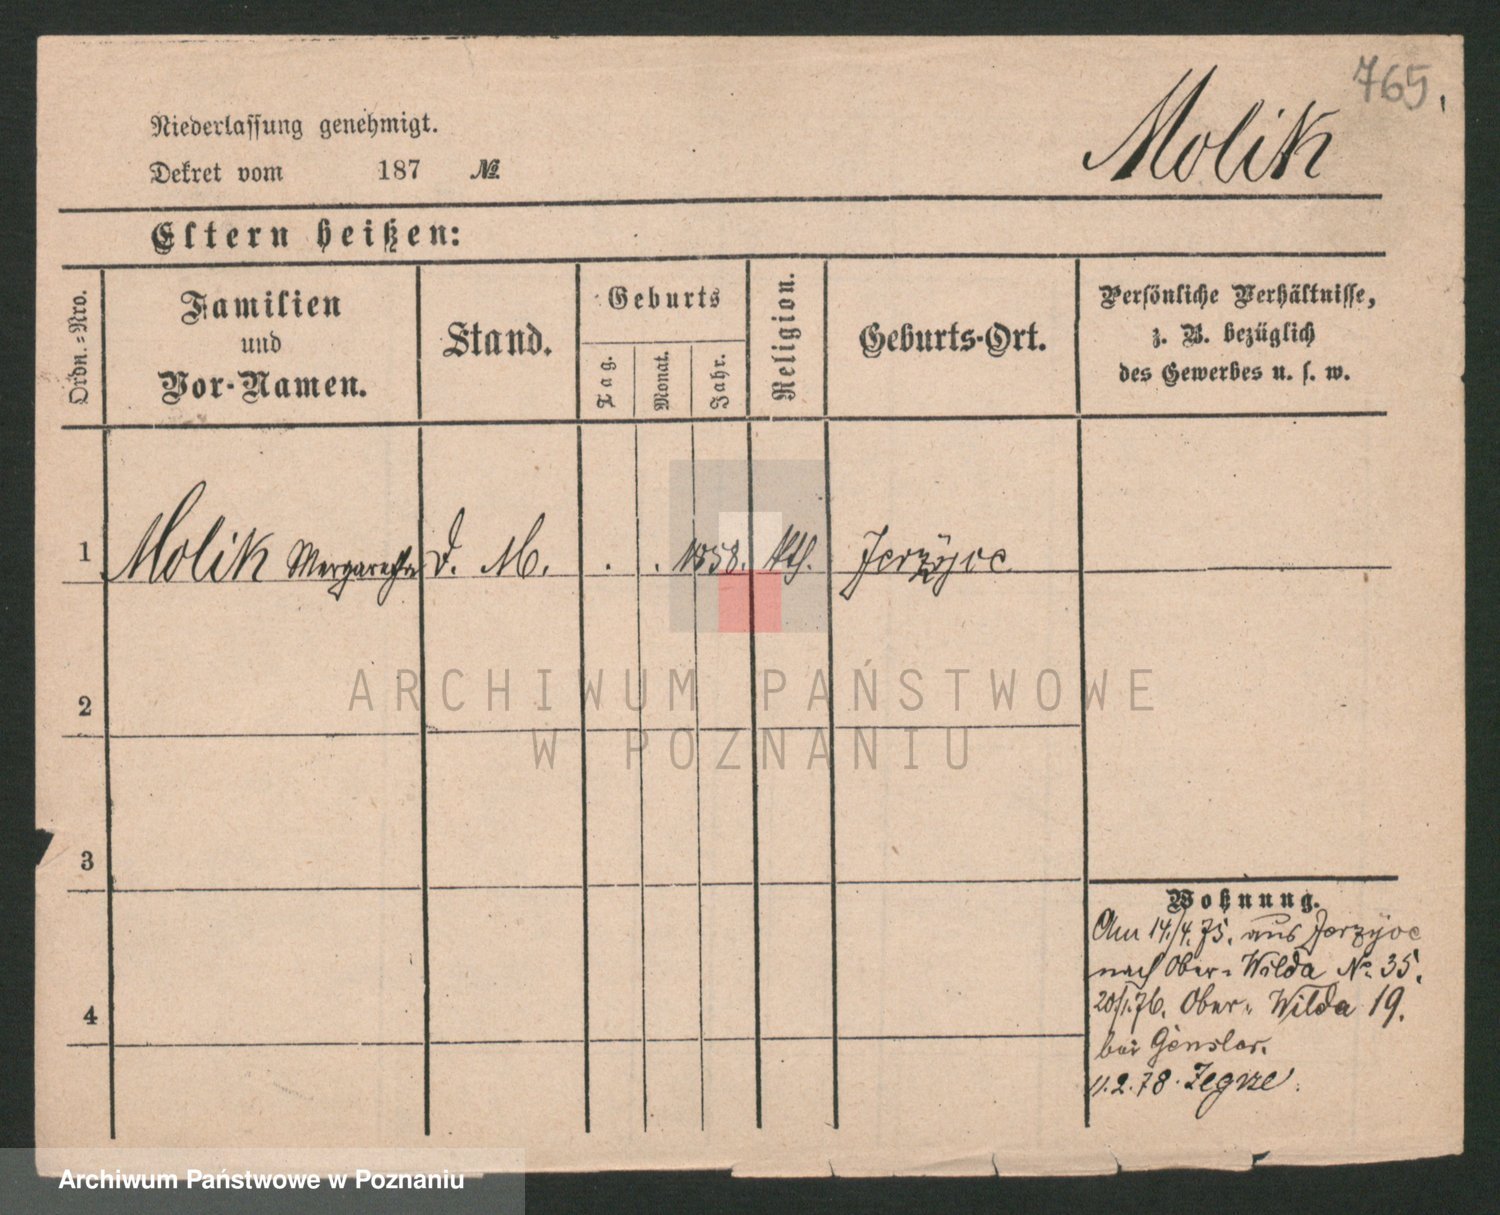 765.
Molik
Niederlassung genehmigt.
Dekret vom 187 №
Eltern heißen:
Ordn.-Nro.
Familien
und
Vor-Namen.
Stand.
Geburts
Tag.
Monat.
Jahr.
Religion.
Geburts-Ort.
Persönliche Verhältnisse,
z. B. bezüglich
des Gewerbes u. s. w.
1 Molik Margaretha d. M. . . 1858. kth. Jerzyce
2
3
4
Wohnung.
Am 14./4. 75. aus Jerzyce
nach Ober-Wilda No. 35.
20/1.76. Ober-Wilda 19.
bei Gensler.
11.2.78. Zegrze.
ARCHIWUM PAŃSTWOWE
W POZNANIU
Archiwum Państwowe w Poznaniu